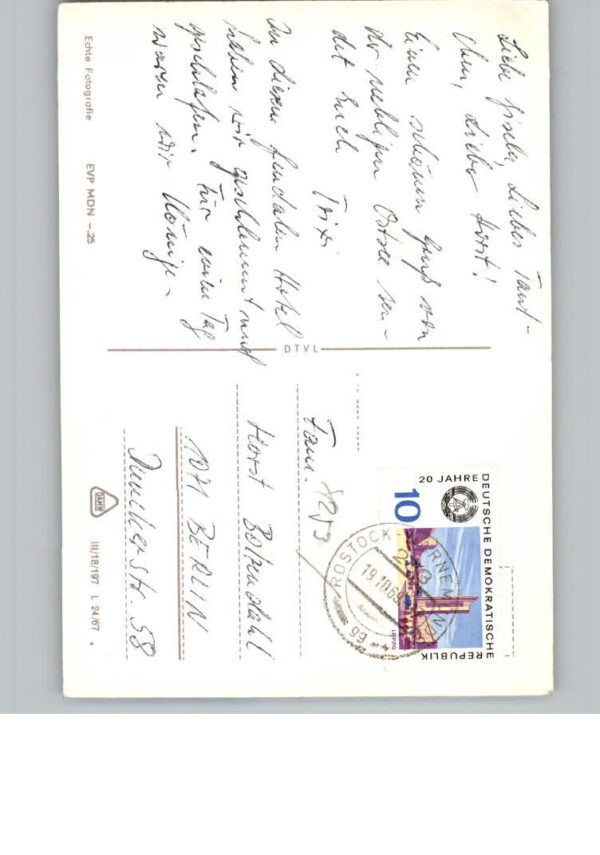 Liebe Gisela, Liebes Tant-
chen, Lieber Horst!
Einen schönen Gruß von
der nebligen Ostsee sen-
det Euch Trixi
In diesem feudalen Hotel
haben wir geschlemmt und
geschlafen. Für einen Tag
waren wir Könige -
Echte Fotografie EVP MDN -.25
DTVL
20 JAHRE
DEUTSCHE DEMOKRATISCHE
REPUBLIK
10
LEIPZIG
ROSTOCK
19.10.69
Fam.
Horst
1071 BERLIN
58
DAMW
III/18/197 L 24/67